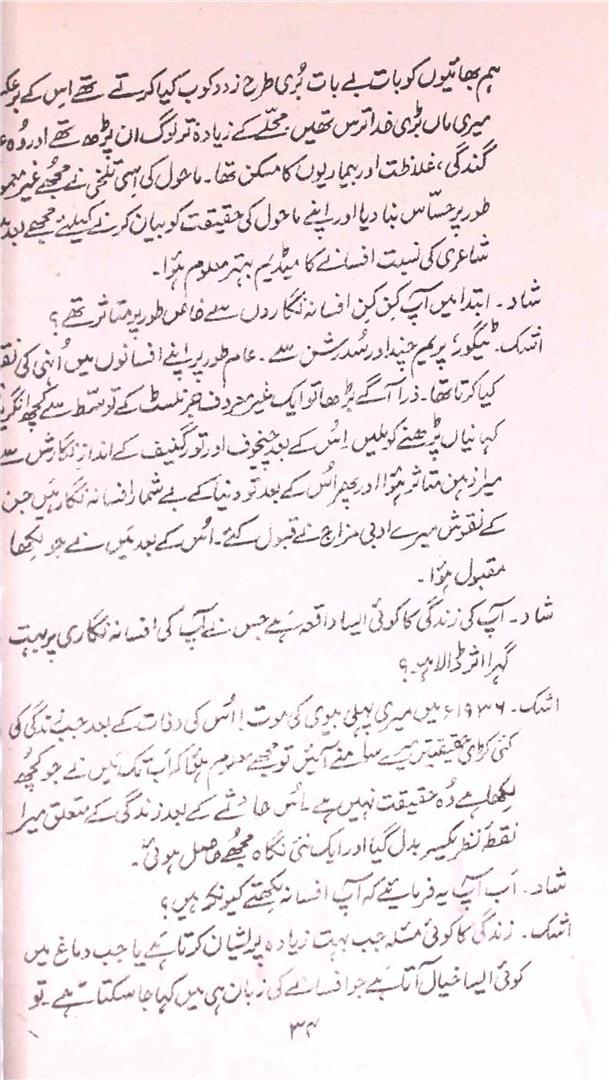 ہم بھائیوں کو بات بے بات بُری طرح زدوکوب کیا کرتے تھے اس کے برعکس
میری ماں بڑی خداترس تھیں۔ محلّے کے زیادہ تر لوگ ان پڑھ تھے اور وُہ
گندگی، غلاظت اور بیماریوں کا مسکن تھا۔ ماحول کی اِسی تلخی نے مجھے غیر معمو
طور پر حسّاس بنا دیا اور اپنے ماحول کی حقیقت کو بیان کرنے کیلئے مجھے بعد
شاعری کی نسبت افسانے کا میڈیم بہتر معلوم ہؤا۔
شاد۔ ابتدا میں آپ کِن کِن افسانہ نگاروں سے خاص طور پر متاثر تھے؟
اشک۔ ٹیگور، پریم چند اور سُدرشن سے۔ عام طور پر اپنے افسانوں میں اُنہی کی نقـ
کیا کرتا تھا۔ ذرا آگے بڑھا تو ایک غیر معروف جرنلسٹ کے توسّط سے کچھ انگریـ
کہانیاں پڑھنے کو ملیں۔ اِس کے بعد چیخوف اور تورگنیف کے اندازِ نگارش سے
میرا ذہن متاثر ہؤا اور پھر اُس کے بعد تو دنیا کے بے شمار افسانہ نگار ہیں جن
کے نقوش میرے ادبی مزاج نے قبول کئے۔ اُس کے بعد مَیں نے جو لِکھا
مقبول ہؤا۔
شاد۔ آپ کی زندگی کا کوئی ایسا واقعہ ہے جس نے آپ کی افسانہ نگاری پر بہت
گہرا اثر ڈالا ہو۔؟
اشک۔ ۱۹۳۶ء میں میری پہلی بیوی کی موت! اُس کی وفات کے بعد جب زندگی کی
کئی کڑی حقیقتیں میرے سامنے آئیں تو مجھے معلوم ہؤا کہ اب تک مَیں نے جو کچُھ
لِکھا ہے وُہ حقیقت نہیں ہے۔ اُس حادثے کے بعد زندگی کے متعلق میرا
نقطۂ نظر یکسر بدل گیا اور ایک نئی نگاہ مجُھے حاصل ہوئی۔
شاد۔ اَب آپ یہ فرمایئے کہ آپ افسانہ لِکھتے کیونکر ہیں؟
اشک۔ زندگی کا کوئی مسٔلہ جب بہت زیادہ پریشان کرتا ہے یا جب دماغ میں
کوئی ایسا خیال آتا ہے جو افسانے کی زبان ہی میں کہا جا سکتا ہے۔ تو
۳۴